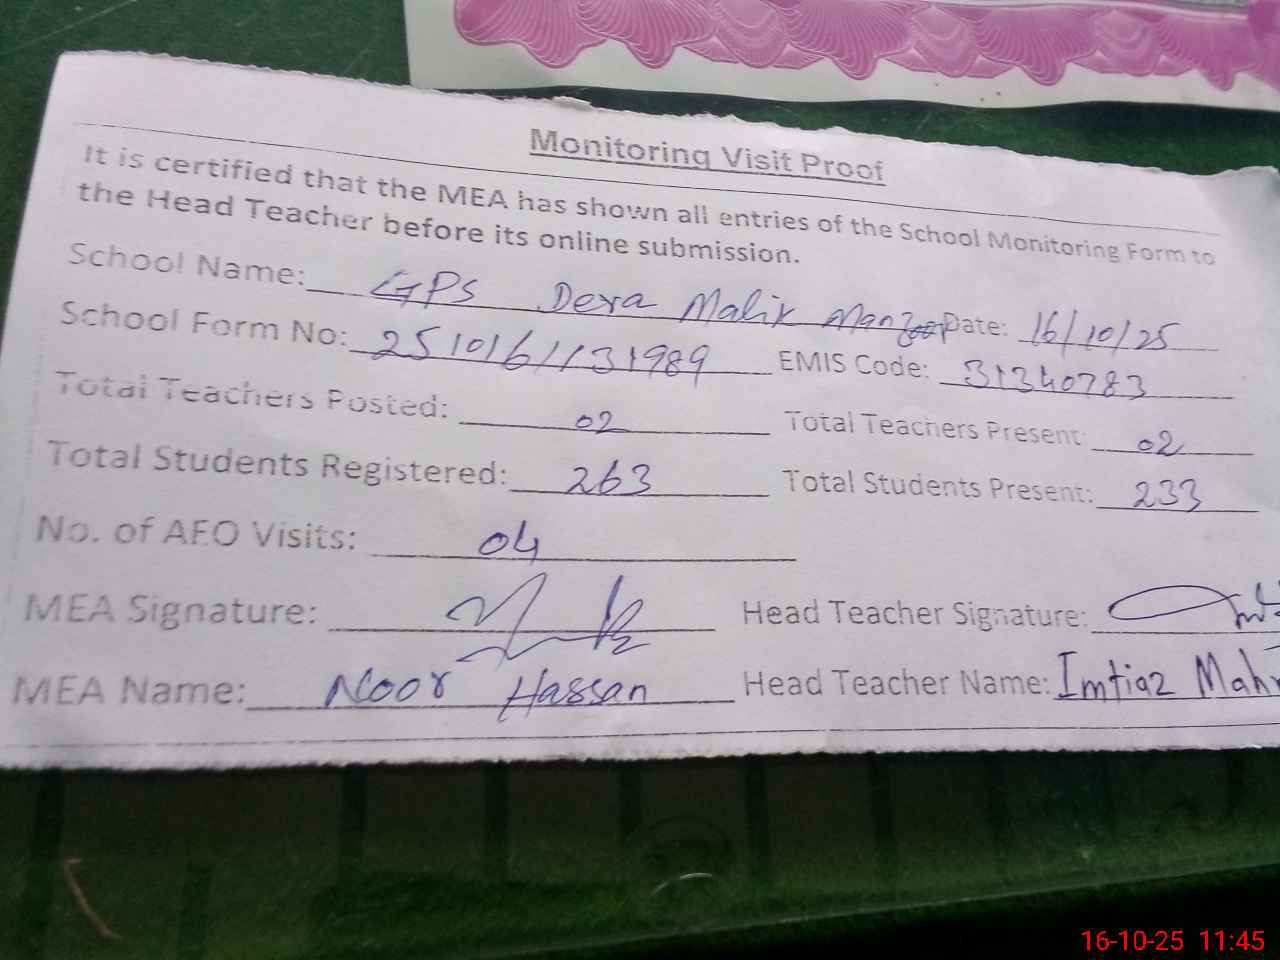 Monitoring Visit Proof
It is certified that the MEA has shown all entries of the School Monitoring Form to
the Head Teacher before its online submission.
School Name: GPS Dera Malik Manzoor Date: 16/10/25
School Form No: 251016113 1989 EMIS Code: 31340783
Total Teachers Posted: 02 Total Teachers Present: 02
Total Students Registered: 263 Total Students Present: 233
No. of AEO Visits: 04
MEA Signature: Head Teacher Signature:
MEA Name: Noor Hassan Head Teacher Name: Imtiaz Mah
16-10-25 11:45